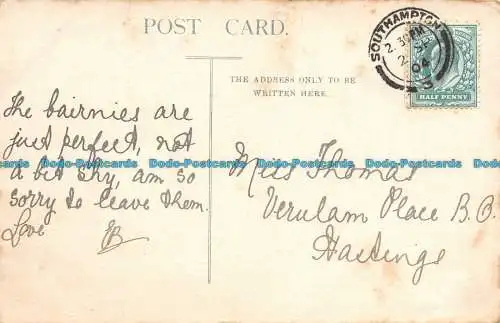 POST CARD.
THE ADDRESS ONLY TO BE
WRITTEN HERE.
SOUTHAMPTON
2.30PM
04
3
HALF PENNY
The bairnies are
just perfect, not
a bit shy, am so
sorry to leave them.
Love
Miss Thomas
Verulam Place B.O.
Hastings
Dodo-Postcards Dodo-Postcards Dodo-Postcards Dodo-Postcards Dodo-Postcards Dodo-Postcards